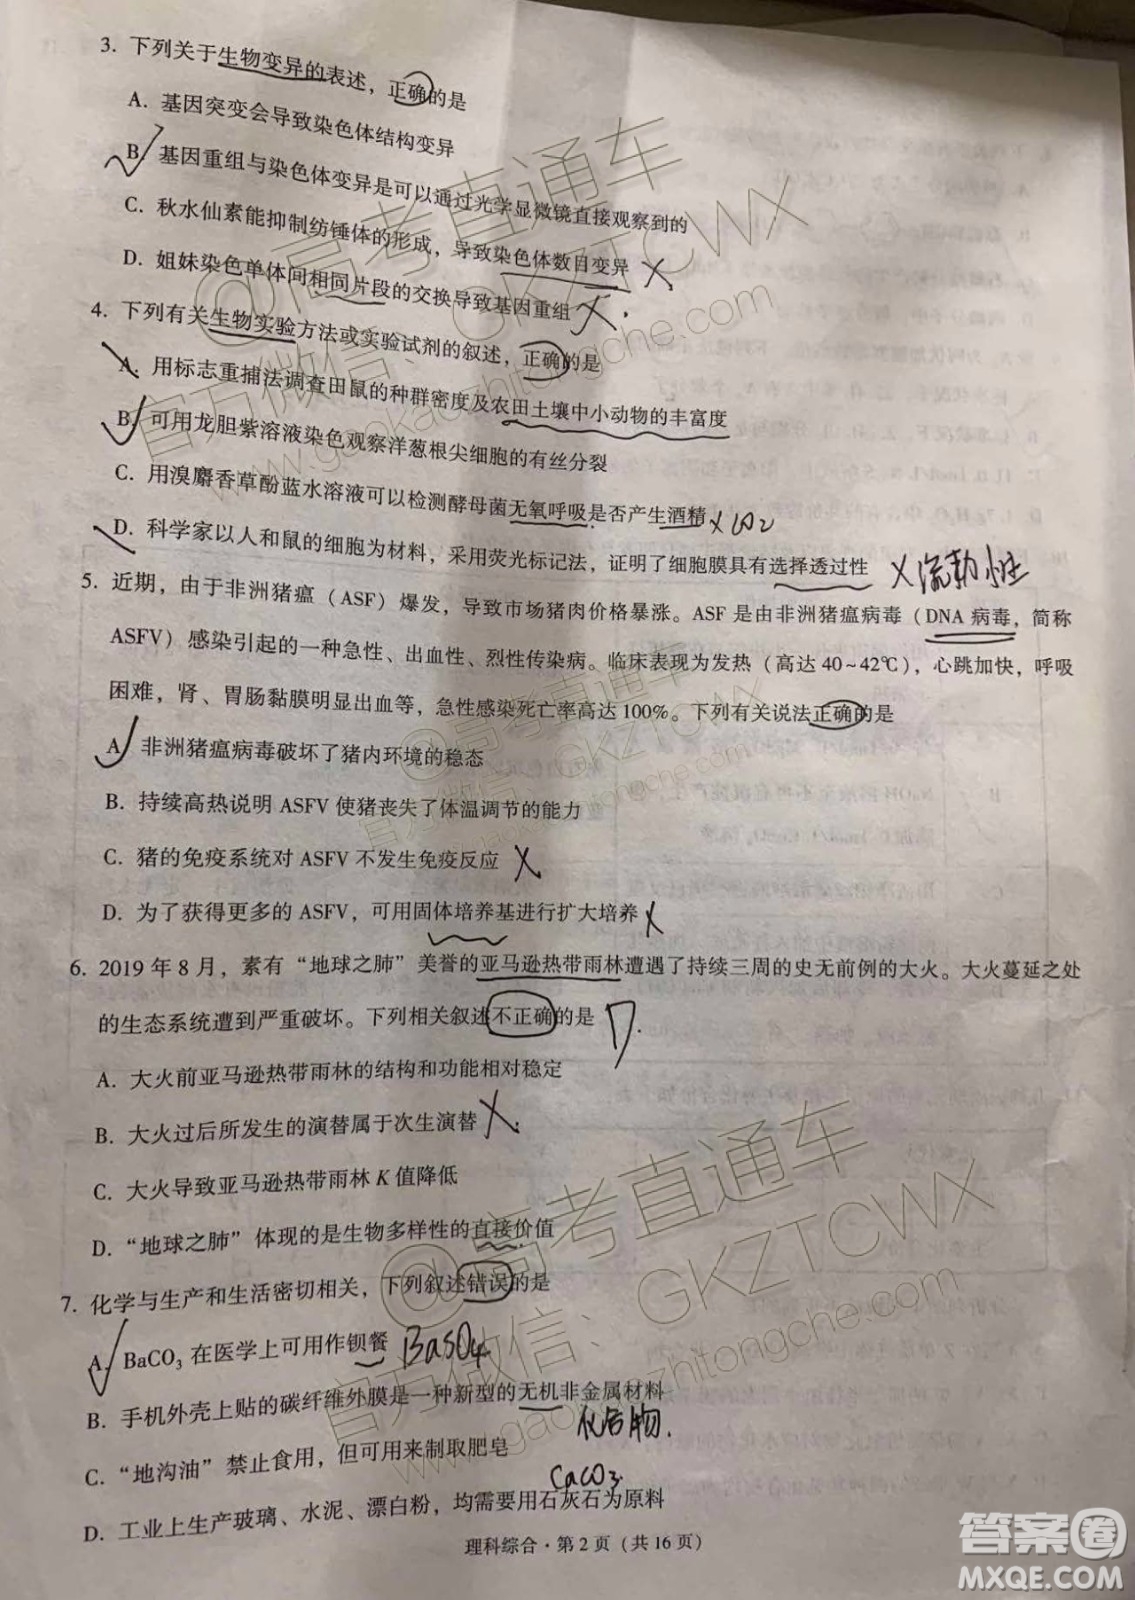 3. 下列关于生物变异的表述，正确的是
A. 基因突变会导致染色体结构变异
B. 基因重组与染色体变异是可以通过光学显微镜直接观察到的
C. 秋水仙素能抑制纺锤体的形成，导致染色体数目变异 X
D. 姐妹染色单体间相同片段的交换导致基因重组 X
4. 下列有关生物实验方法或实验试剂的叙述，正确的是
A. 用标志重捕法调查田鼠的种群密度及农田土壤中小动物的丰富度
B. 可用龙胆紫溶液染色观察洋葱根尖细胞的有丝分裂
C. 用溴麝香草酚蓝水溶液可以检测酵母菌无氧呼吸是否产生酒精 X CO2
D. 科学家以人和鼠的细胞为材料，采用荧光标记法，证明了细胞膜具有选择透过性 X 流动性
5. 近期，由于非洲猪瘟（ASF）爆发，导致市场猪肉价格暴涨。ASF 是由非洲猪瘟病毒（DNA 病毒，简称
ASFV）感染引起的一种急性、出血性、烈性传染病。临床表现为发热（高达 40~42℃），心跳加快，呼吸
困难，肾、胃肠黏膜明显出血等，急性感染死亡率高达 100%。下列有关说法正确的是
A. 非洲猪瘟病毒破坏了猪内环境的稳态
B. 持续高热说明 ASFV 使猪丧失了体温调节的能力
C. 猪的免疫系统对 ASFV 不发生免疫反应 X
D. 为了获得更多的 ASFV，可用固体培养基进行扩大培养 X
6. 2019 年 8 月，素有“地球之肺”美誉的亚马逊热带雨林遭遇了持续三周的史无前例的大火。大火蔓延之处
的生态系统遭到严重破坏。下列相关叙述不正确的是 D.
A. 大火前亚马逊热带雨林的结构和功能相对稳定
B. 大火过后所发生的演替属于次生演替 X
C. 大火导致亚马逊热带雨林 K 值降低
D. “地球之肺”体现的是生物多样性的直接价值
7. 化学与生产和生活密切相关，下列叙述错误的是
A. BaCO₃ 在医学上可用作钡餐 BaSO4
B. 手机外壳上贴的碳纤维外膜是一种新型的无机非金属材料
化合物.
C. “地沟油”禁止食用，但可用来制取肥皂
CaCO3
D. 工业上生产玻璃、水泥、漂白粉，均需要用石灰石为原料
理科综合·第 2 页（共 16 页）
@高考直通车
官方微信：GKZTCWX
www.gaokaozhitongche.com
@高考直通车
官方微信：GKZTCWX
www.gaokaozhitongche.com
@高考直通车
官方微信：GKZTCWX
www.gaokaozhitongche.com
答案圈
MXQE.COM